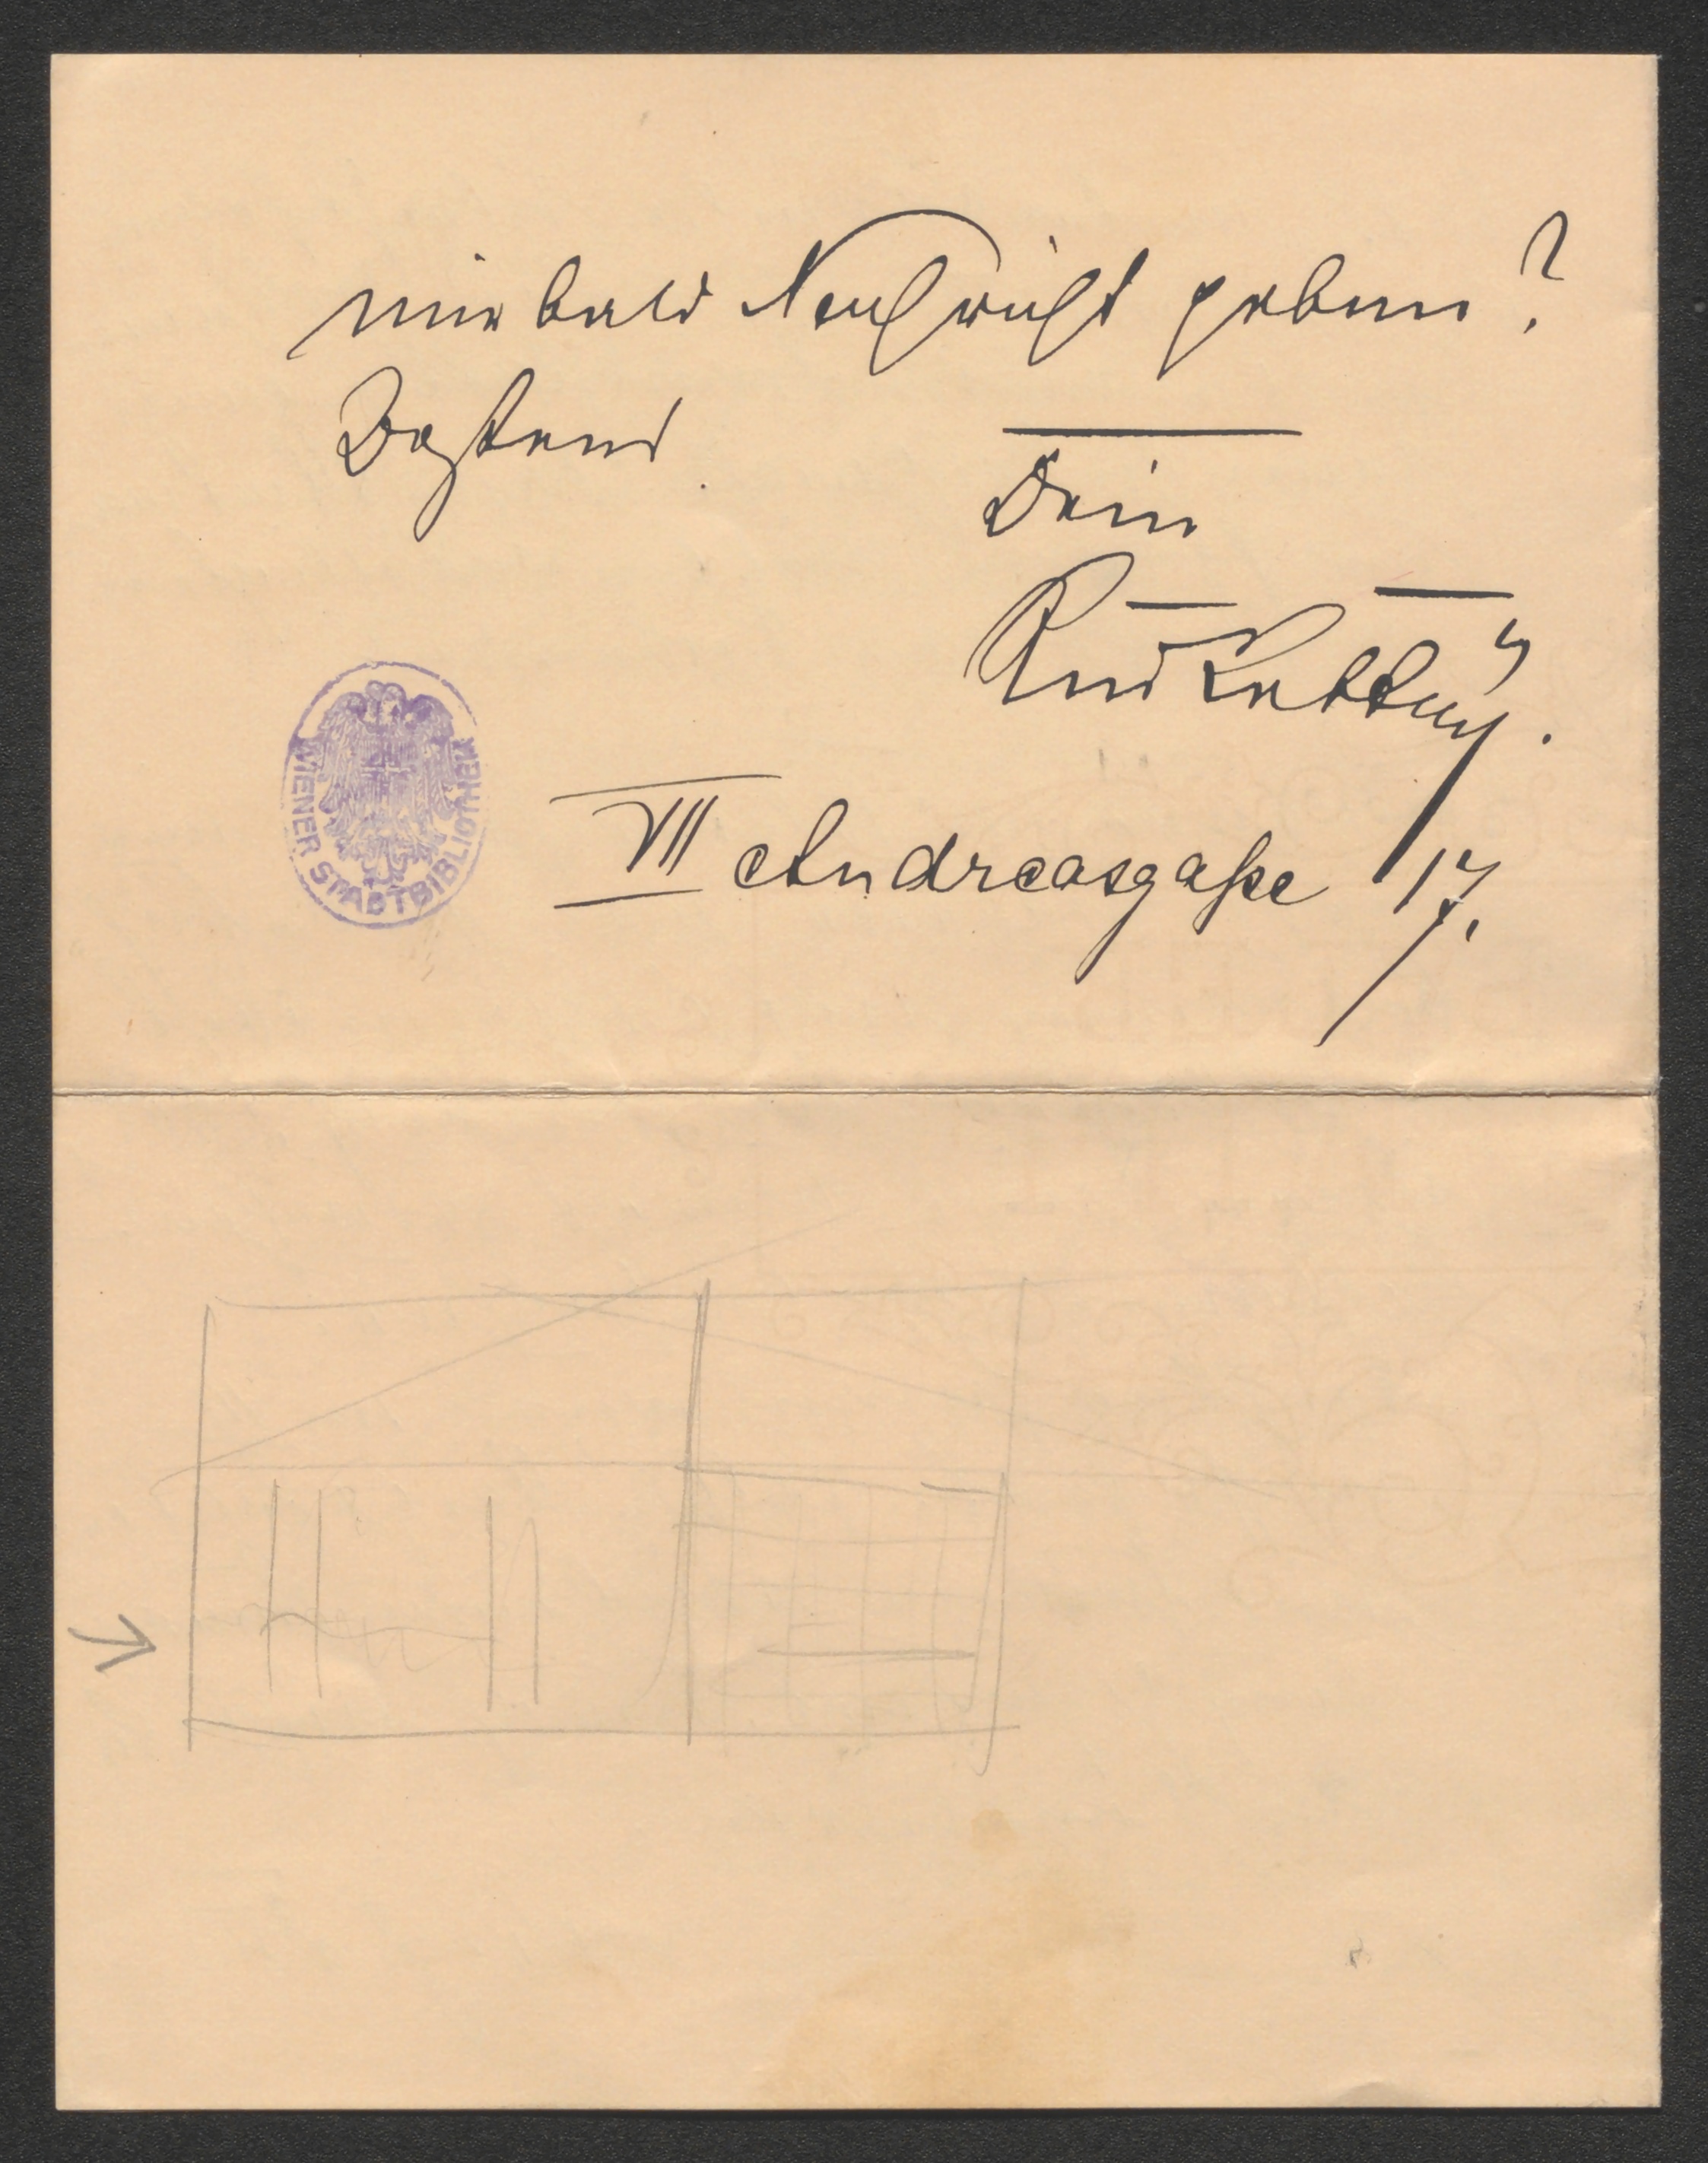 mir bald Nachricht geben?
Dein
Rud
VII Andreasgaße 17.
WIENER STADTBIBLIOTHEK